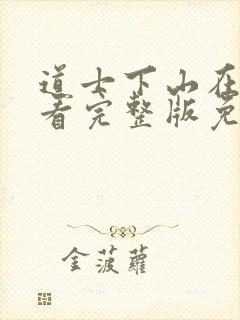 道士下山在
看完整版免
金菠萝